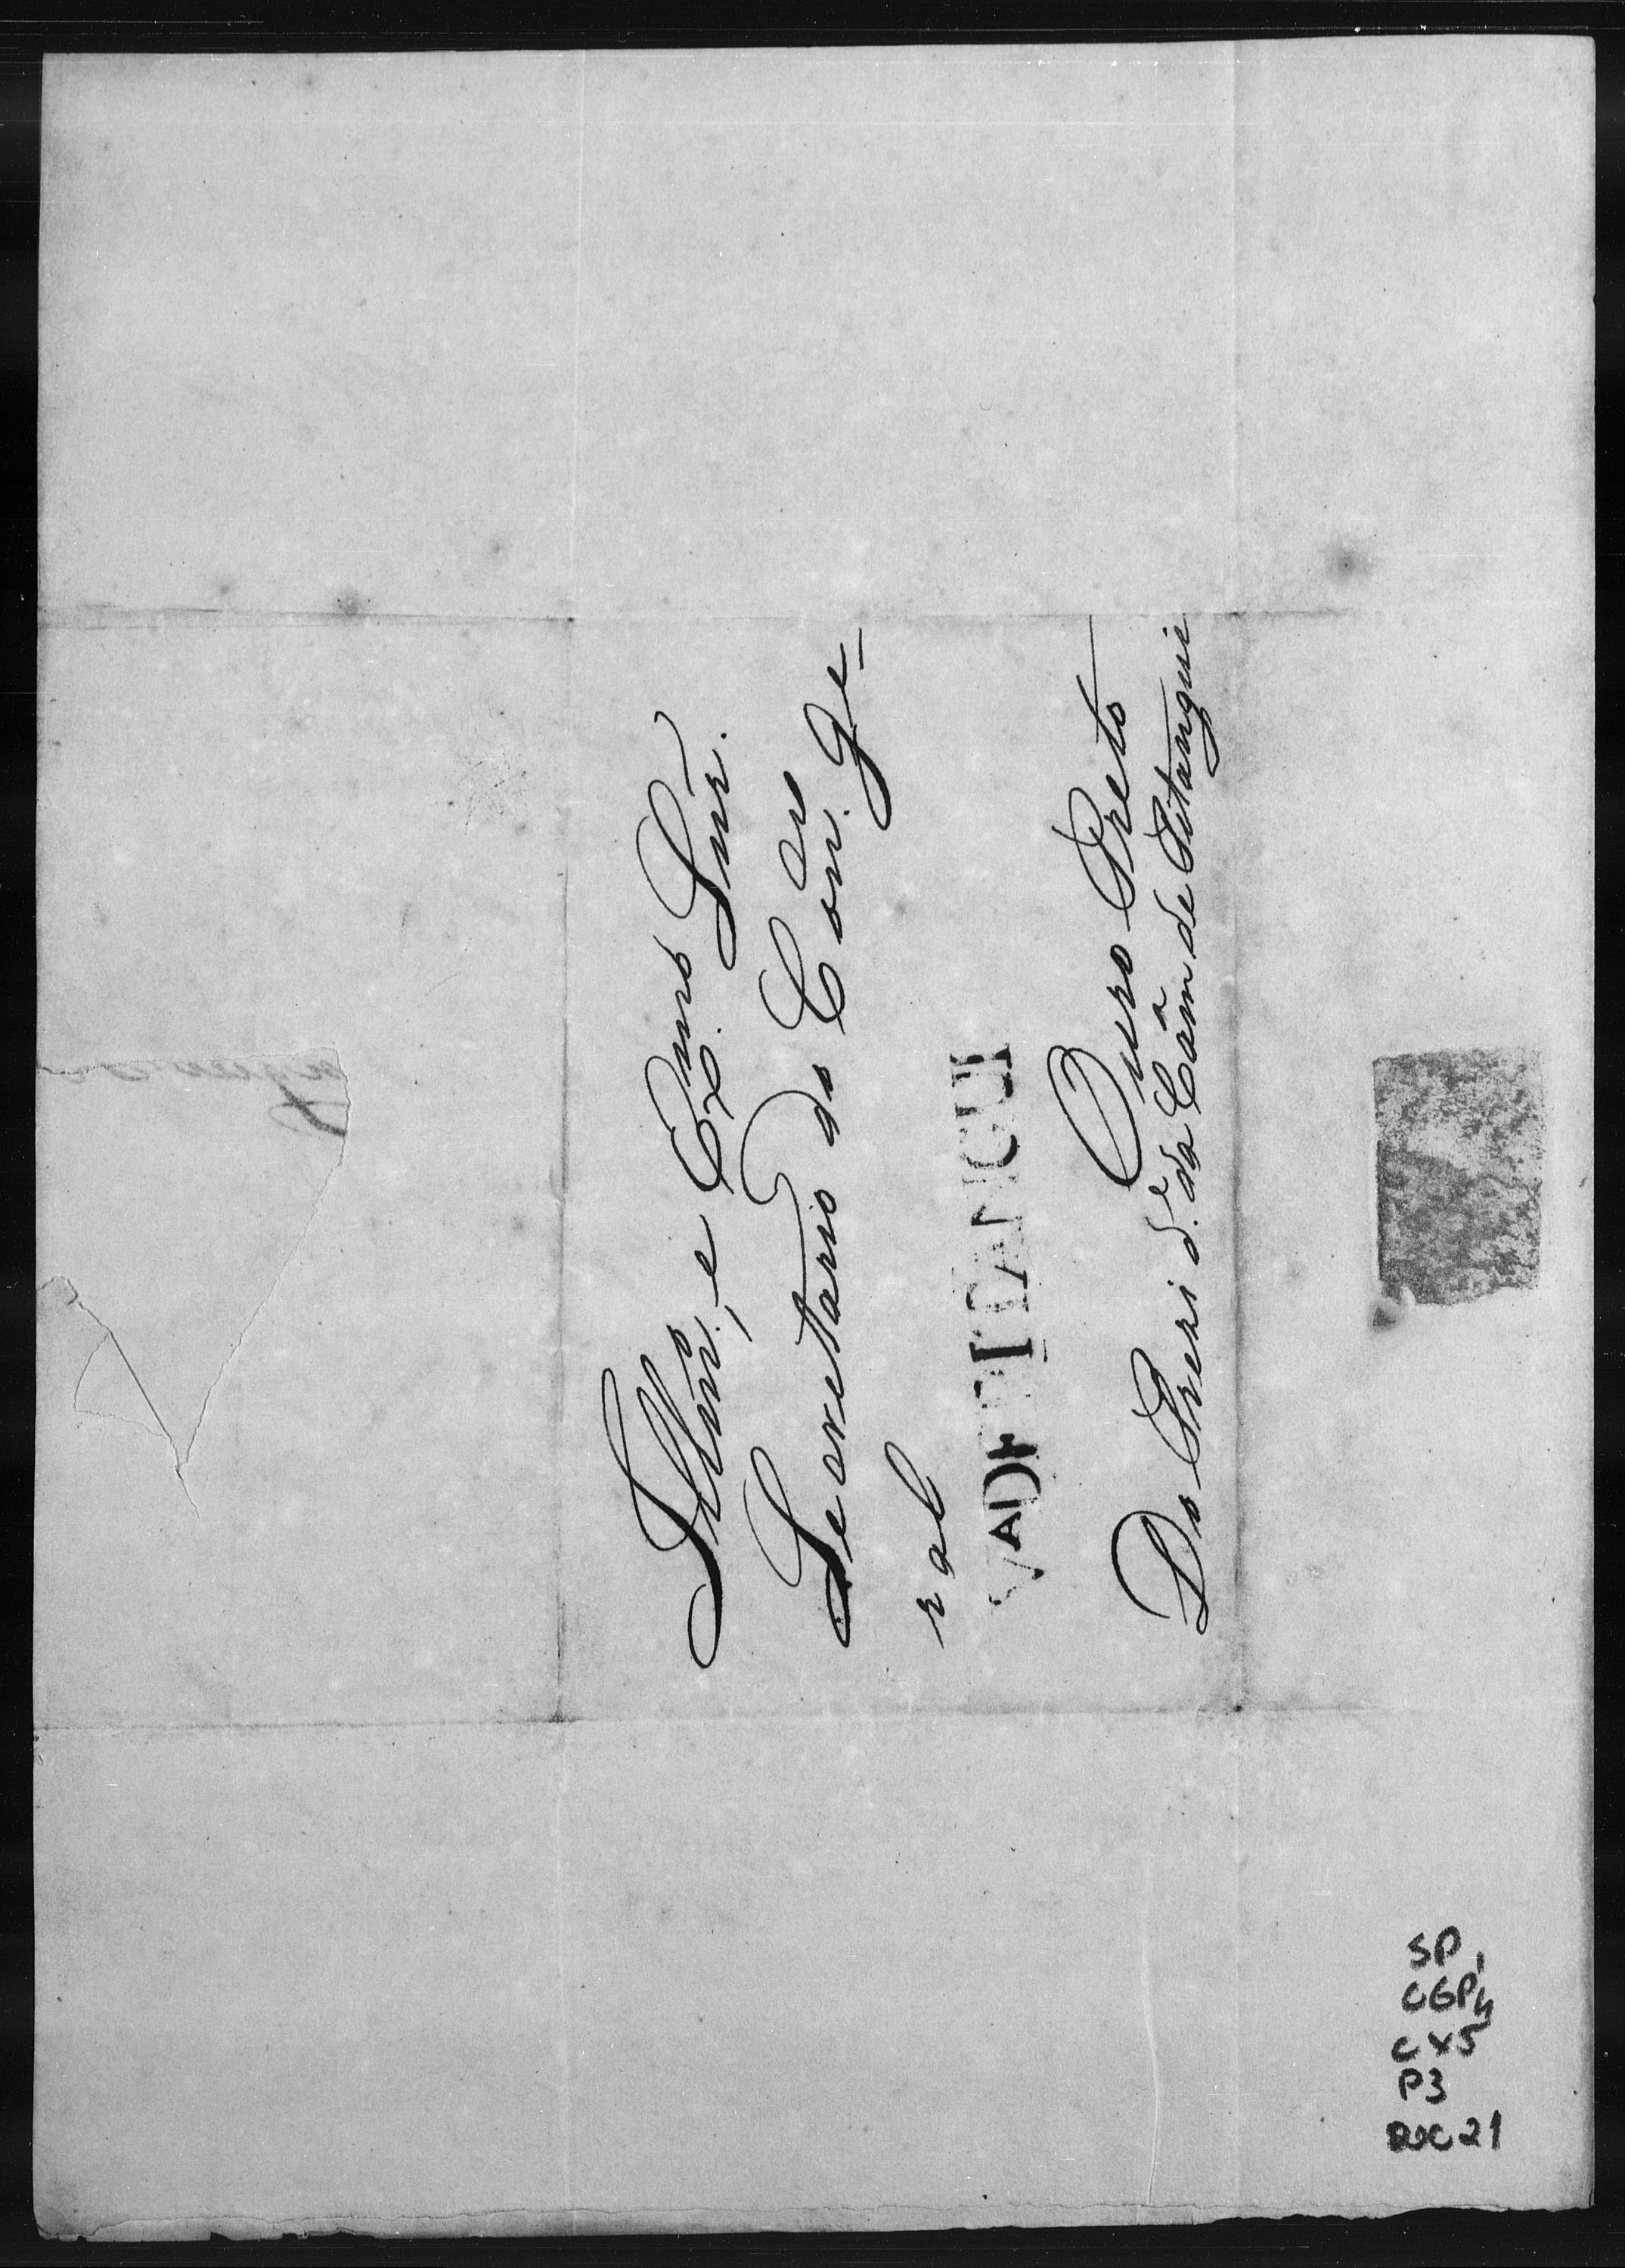 Illmo. e Exmo. Snr.
Secretario do Con.º Ge-
ral
VA DE PITANGUI
Ouro Preto
Do Presi d.e da Câm.a de Pitangui
SP 1
CGP 4
CX5
P3
DOC 21